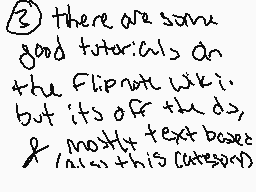 ③ there are some
good tutorials on
the Flipnote wiki.
but its off the ds,
& mostly text based
this category)